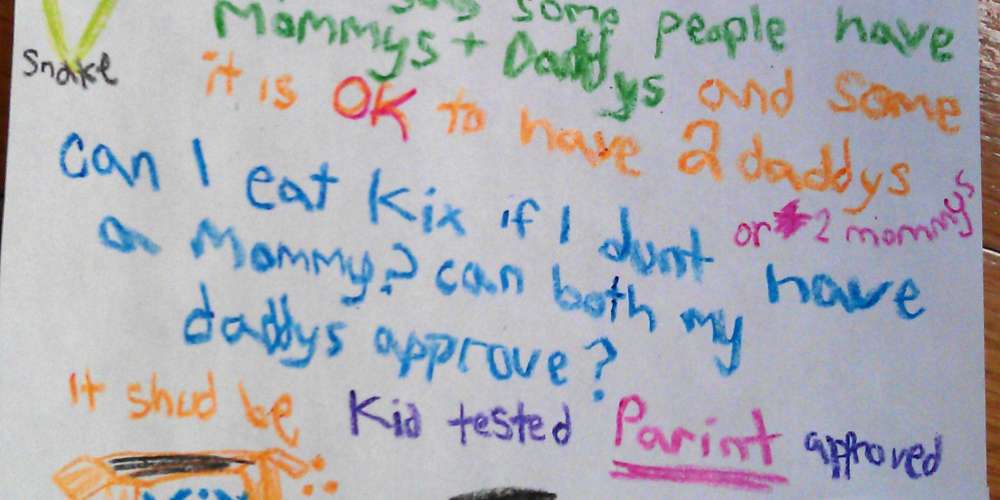 some people have
Snake
Mommys + Daddys and some
it is OK to have 2 daddys
or 2 mommys
can I eat Kix if I dunt have
a Mommy? can both my
daddys approve?
It shud be Kid tested Parint approved